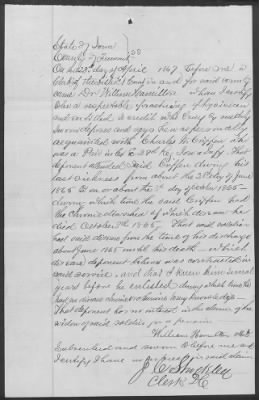 State of Iowa
County of Fremont } SS
On this 3d day of April 1867 before me
Clerk of the District Court in and for said county
came Dr William Hamilton whom I certify
to be a respectable practicing Physician
and entitled to credit who being by me duly
sworn deposes and says he was personally
acquainted with Charles W. Coffin who
was a Private in Co
deponent attended said Coffin during his
last sickness from about the day of June
1865 to on or about the 3d day of October 1865
during which time the said Coffin had
the Chronic diarrhoea of which disease he
died October 3d 1865. That said soldier
had said disease from the time of his discharge
about June 1865 until his death which
disease deponent believes was contracted in
said service, and that I knew him several
years before he enlisted during which time he
had no disease
That deponent has no interest in the claim of the
widow of said soldier for a pension
William Hamilton MD
Subscribed and sworn to before me and
I certify I have no interest in said claim
Clerk DC